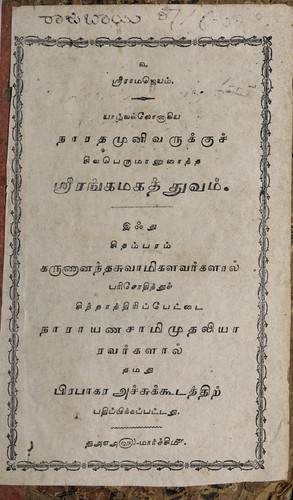 உ
ஸ்ரீராமஜெயம்.
யாழ்வல்லோனாகிய
நாரதமுனிவருக்குச்
சிவபெருமானுரைத்த
ஸ்ரீரங்கமகத்துவம்.
இஃது
சிதம்பரம்
கருணானந்தசுவாமிகளவர்களால்
பரிசோதித்துச்
சிந்தாத்திரிப்பேட்டை
நாராயணசாமிமுதலியா
ரவர்களால்
தமது
பிரபாகர அச்சுக்கூடத்திற்
பதிப்பிக்கப்பட்டது.